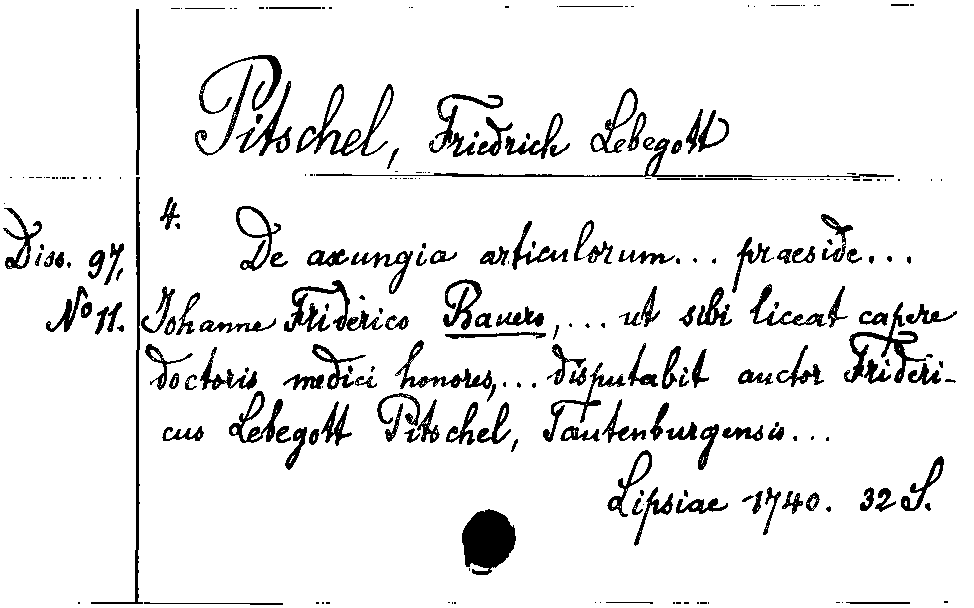 Pitschel, Friedrich Lebegott
4.
Diss. 97, De axungia articulorum... praeside...
No 11. Johanne Friderico Bauero, ... ut sibi liceat capere
doctoris medici honores,... disputabit auctor Frideri-
cus Lebegott Pitschel, Tautenburgensis...
Lipsiae 1740. 32 S.